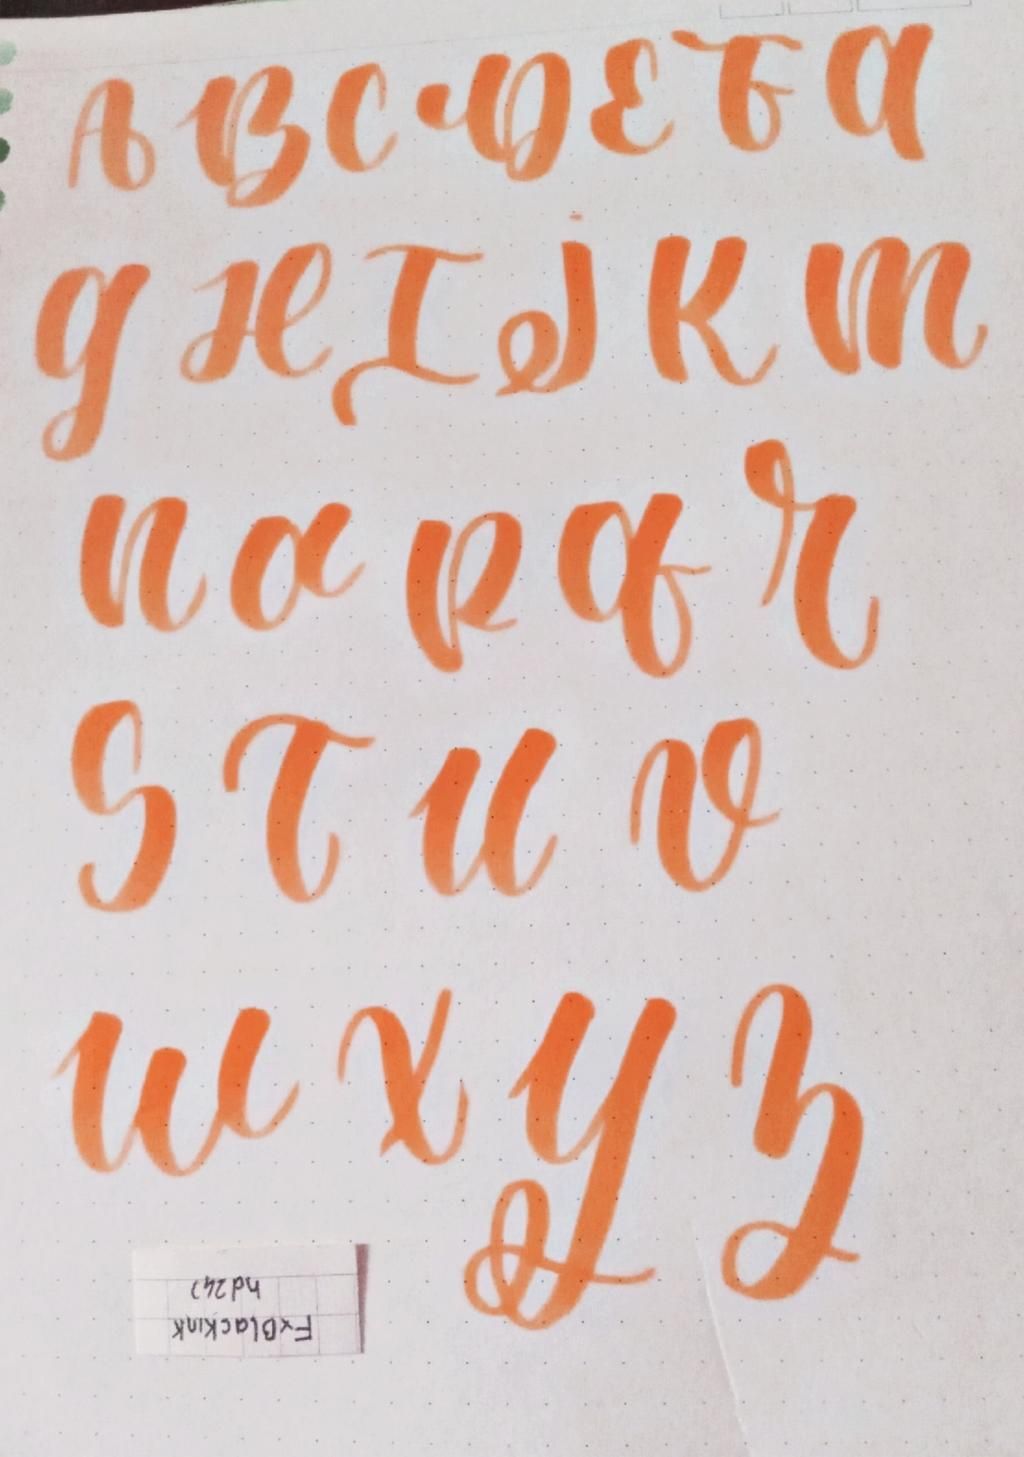 A B C D E F a
g H I J K M
n o p q r
S T U V
W X Y Z
FxBlackink
hd247